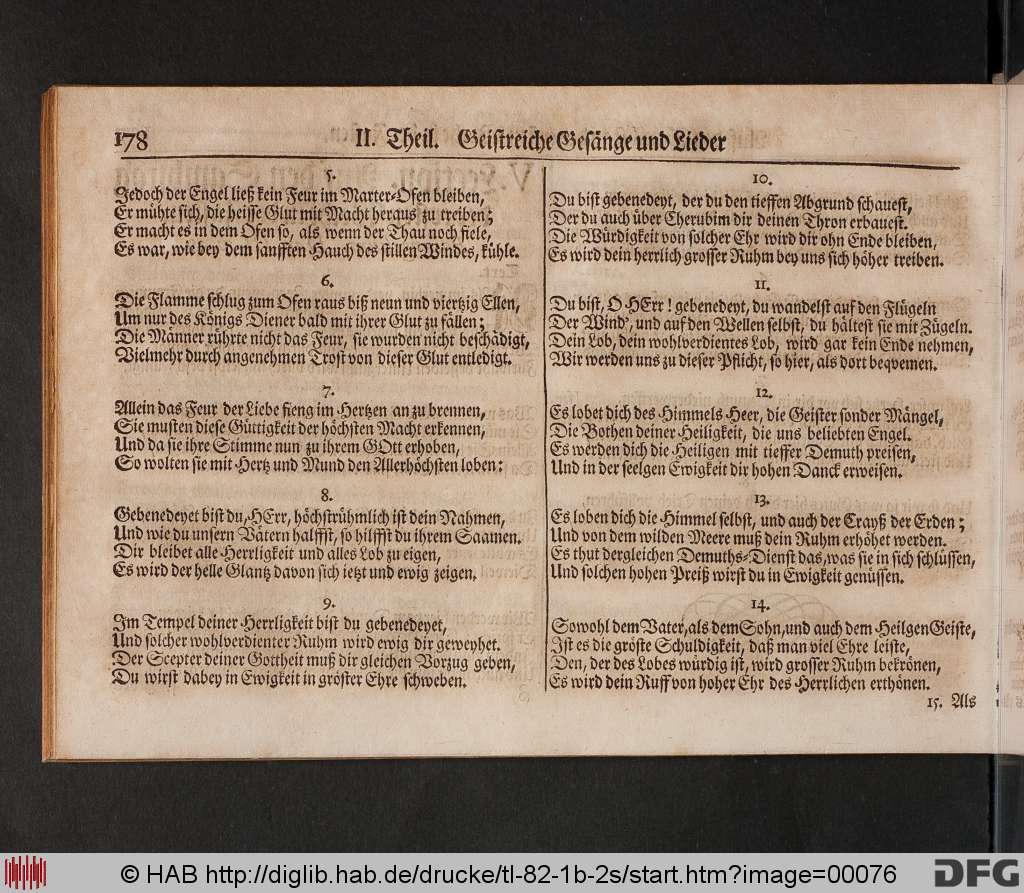 178
II. Theil. Geistreiche Gesänge und Lieder
5.
Jedoch der Engel ließ kein Feur im Marter-Ofen bleiben,
Er mühte sich, die heisse Glut mit Macht heraus zu treiben;
Er macht es in dem Ofen so, als wenn der Thau noch fiele,
Es war, wie bey dem sanfften Hauch des stillen Windes, kühle.
6.
Die Flamme schlug zum Ofen raus biß neun und viertzig Ellen,
Um nur des Königs Diener bald mit ihrer Glut zu fällen;
Die Männer rührte nicht das Feur, sie wurden nicht beschädigt,
Vielmehr durch angenehmen Trost von dieser Glut entledigt.
7.
Allein das Feur der Liebe fieng im Hertzen an zu brennen,
Sie musten diese Güttigkeit der höchsten Macht erkennen,
Und da sie ihre Stimme nun zu ihrem GOtt erhoben,
So wolten sie mit Hertz und Mund den Allerhöchsten loben:
8.
Gebenedeyet bist du, HErr, höchstrühmlich ist dein Nahmen,
Und wie du unsern Vätern halffst, so hilffst du ihrem Saamen.
Dir bleibet alle Herrligkeit und alles Lob zu eigen,
Es wird der helle Glantz davon sich ietzt und ewig zeigen.
9.
Im Tempel deiner Herrligkeit bist du gebenedeyet,
Und solcher wohlverdienter Ruhm wird ewig dir geweyhet.
Der Scepter deiner Gottheit muß dir gleichen Vorzug geben,
Du wirst dabey in Ewigkeit in gröster Ehre schweben.
10.
Du bist gebenedeyt, der du den tieffen Abgrund schauest,
Der du auch über Cherubim dir deinen Thron erbauest.
Die Würdigkeit von solcher Ehr wird dir ohn Ende bleiben,
Es wird dein herrlich grosser Ruhm bey uns sich höher treiben.
11.
Du bist, O HErr! gebenedeyt, du wandelst auf den Flügeln
Der Wind', und auf den Wellen selbst, du hältest sie mit Zügeln.
Dein Lob, dein wohlverdientes Lob, wird gar kein Ende nehmen,
Wir werden uns zu dieser Pflicht, so hier, als dort beqvemen.
12.
Es lobet dich des Himmels Heer, die Geister sonder Mängel,
Die Bothen deiner Heiligkeit, die uns beliebten Engel.
Es werden dich die Heiligen mit tieffer Demuth preisen,
Und in der seelgen Ewigkeit dir hohen Danck erweisen.
13.
Es loben dich die Himmel selbst, und auch der Crayß der Erden;
Und von dem wilden Meere muß dein Ruhm erhöhet werden.
Es thut dergleichen Demuths-Dienst das, was sie in sich schlüssen,
Und solchen hohen Preiß wirst du in Ewigkeit genüssen.
14.
Sowohl dem Vater, als dem Sohn, und auch dem Heilgen Geiste,
Ist es die gröste Schuldigkeit, daß man viel Ehre leiste,
Den, der des Lobes würdig ist, wird grosser Ruhm bekrönen,
Es wird dein Ruff von hoher Ehr des Herrlichen erthönen.
15. Als
© HAB http://diglib.hab.de/drucke/tl-82-1b-2s/start.htm?image=00076
DFG